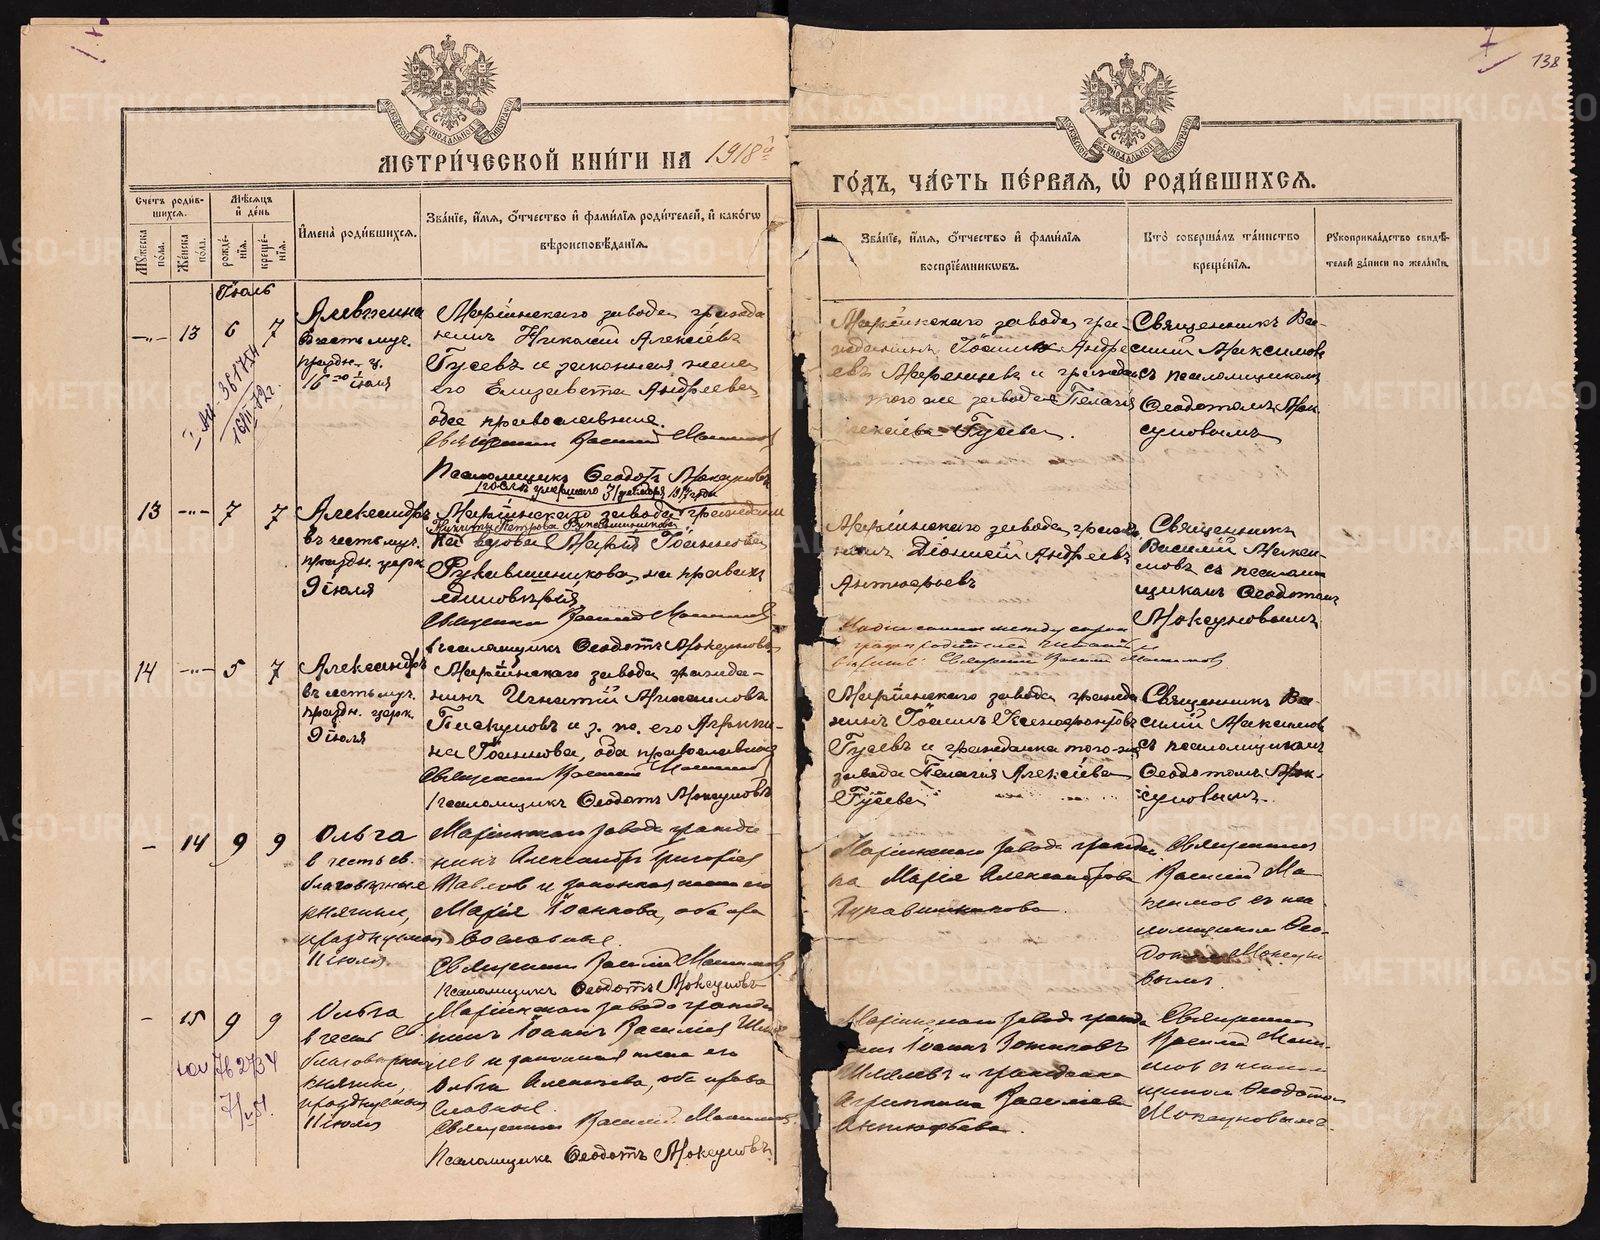 138
МЕТРИ́ЧЕСКОЙ КНИ́ГИ НА 1918й
ГО́ДЪ, ЧА́СТЬ ПЕ́РВАЯ, Ѡ҆ РОДИ́ВШИХСЯ.
Счетъ роди́вшихся.
Му́жеска по́ла.
Же́нска по́ла.
Мѣ́сяцъ и де́нь
рожде́нїя.
креще́нїя.
И҆мена̀ роди́вшихся.
Зва́нїе, и҆́мя, ѻ҆́тчество и҆ фами́лїя роди́телей, и҆ како́гѡ
вѣроисповѣ́данїя.
Зва́нїе, и҆́мя, ѻ҆́тчество и҆ фами́лїя
воспрїе́мникѡвъ.
Кто̀ соверша́лъ та́инство
креще́нїя.
Рукоприкла́дство свидѣ́-
телей за́писи по жела́нїю.
Іюль
13 6 7
Алевтина
въ честь муч.
праздн. ц.
16го іюля
Маріинскаго завода гражда
нинъ Николай Алексѣевъ
Гусевъ и законная жена
его Елизавета Андреева,
обое православные.
Священникъ Василій Максимовъ
Псаломщикъ Ѳеодотъ Мокеуновъ
Маріинскаго завода гра-
жданинъ Іоаннъ Андре
евъ и гражданка
того же завода Пелагія
Алексѣева Гусева.
Священникъ Ва-
силій Максимовъ
съ псаломщикомъ
Ѳеодотомъ Мок-
еуновымъ
13 7 7
Александръ
въ честь муч.
праздн. церк.
9 іюля
послѣ умершаго
Маріинскаго завода гражданина
Никиты Петрова Рукавишникова
вдова Марія Іоаннова
Рукавишникова, на правахъ
единовѣрія
Священникъ Василій Максимовъ
Псаломщикъ Ѳеодотъ Мокеуновъ
Маріинскаго завода гражда
нинъ Діонисій Андреевъ
Антюфьевъ
Священникъ
Василій Макси-
мовъ съ псалом
щикомъ Ѳеодотомъ
Мокеуновымъ
Надписанное между строк
Священникъ Василій Максимовъ
14 5 7
Александръ
въ честь муч.
праздн. церк.
9 іюля
Маріинскаго завода гражда-
нинъ Игнатій Михаиловъ
Пискуновъ и з. ж. его Агрипи-
на Іоаннова, оба православные
Священникъ Василій Максимовъ
Псаломщикъ Ѳеодотъ Мокеуновъ
Маріинскаго завода гражда
нинъ Іоаннъ Ксенофонтовъ
Гусевъ и гражданка того же
завода Пелагія Алексѣева
Гусева
Священникъ Ва-
силій Максимовъ
съ псаломщикомъ
Ѳеодотомъ Мок-
еуновымъ.
14 9 9
Ольга
в честь св.
благовѣрные
княгини,
празднуемой
11 іюля
Маріинскаго завода гражда-
нинъ Александръ Григорьев
Павлов и законная жена его
Марія Іоаннова, оба пра
вославные.
Священникъ Василій Максимовъ
Псаломщикъ Ѳеодотъ Мокеуновъ
Маріинскаго завода граждан
ка Марія Александрова
Рукавишникова.
Священник
Василій Ма
ксимов съ пса-
ломщиком Ѳео-
дотом Мокеуно
вымъ.
15 9 9
Ольга
в честь св.
благоверныя
княгини,
празднуемыя
11 іюля
Маріинскаго завода гражда
нинъ Іоаннъ Василіев
и законная жена его
Ольга Алексѣева, оба право
славные.
Священникъ Василій Максимовъ
Псаломщикъ Ѳеодотъ Мокеуновъ
Маріинскаго завода гражда
нин Іоаннъ
и гражданка
Агриппина Василіева
Антюфьева.
Священник
Василій Макси-
мов съ псалом
щиком Ѳеодотом
Мокеуновымъ.